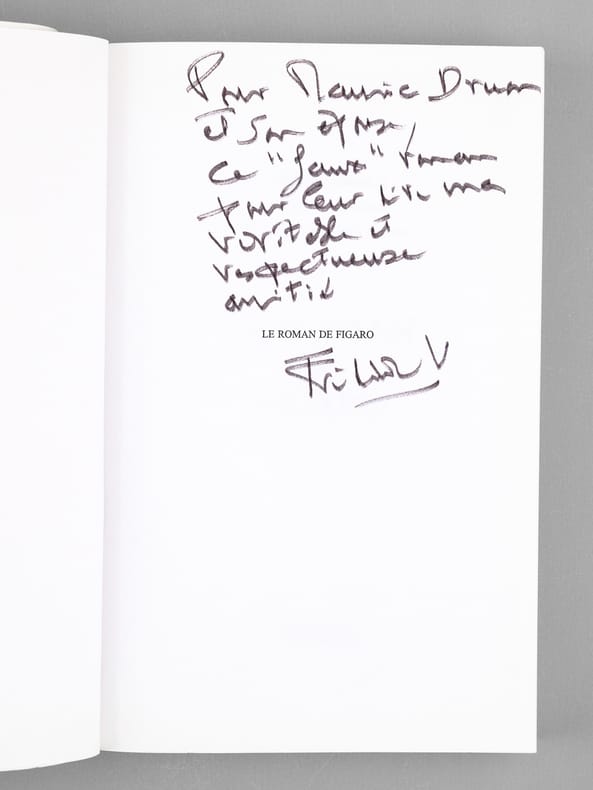 Pour Maurice Druon
et son épouse,
ce "faux" roman
pour leur dire ma
véritable et
respectueuse
amitié
LE ROMAN DE FIGARO
Frédéric V